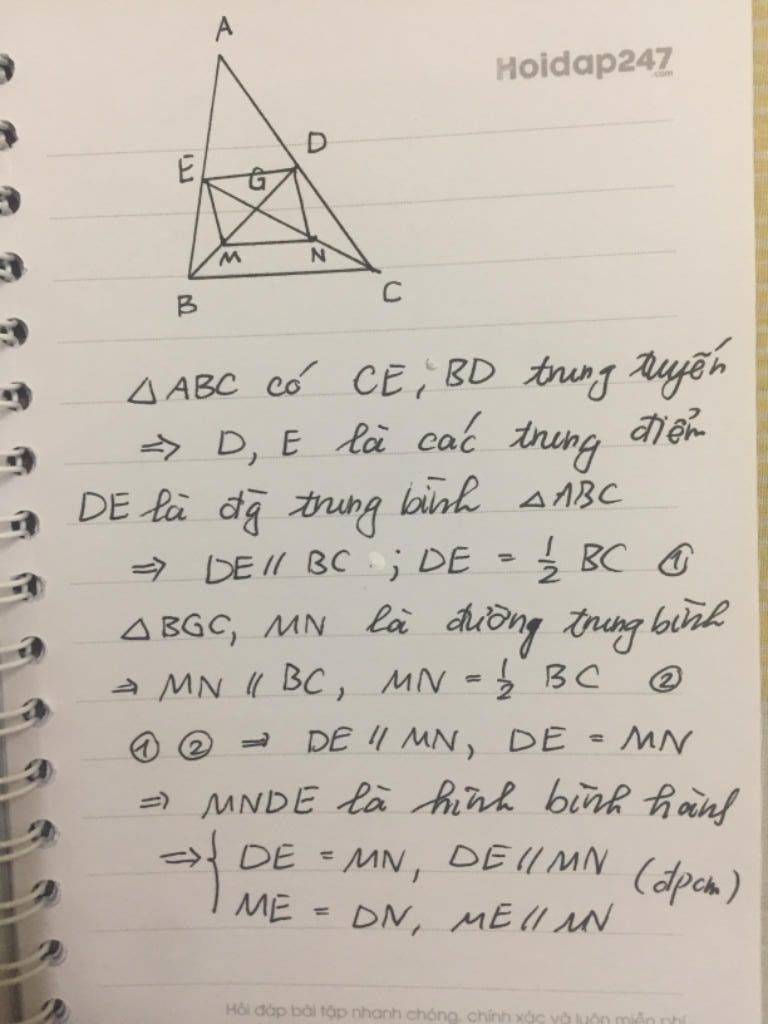 A
Hoidap247
.com
D
E
G
M
N
B
C
△ABC có CE, BD trung tuyến
=> D, E là các trung điểm
DE là đg̀ trung bình △ABC
=> DE // BC ; DE = 1/2 BC ①
△BGC, MN là đường trung bình
=> MN // BC, MN = 1/2 BC ②
① ② => DE // MN, DE = MN
=> MNDE là hình bình hành
=> { DE = MN, DE // MN (đpcm)
ME = DN, ME // MN
Hỏi đáp bài tập nhanh chóng, chính xác và luôn miễn phí